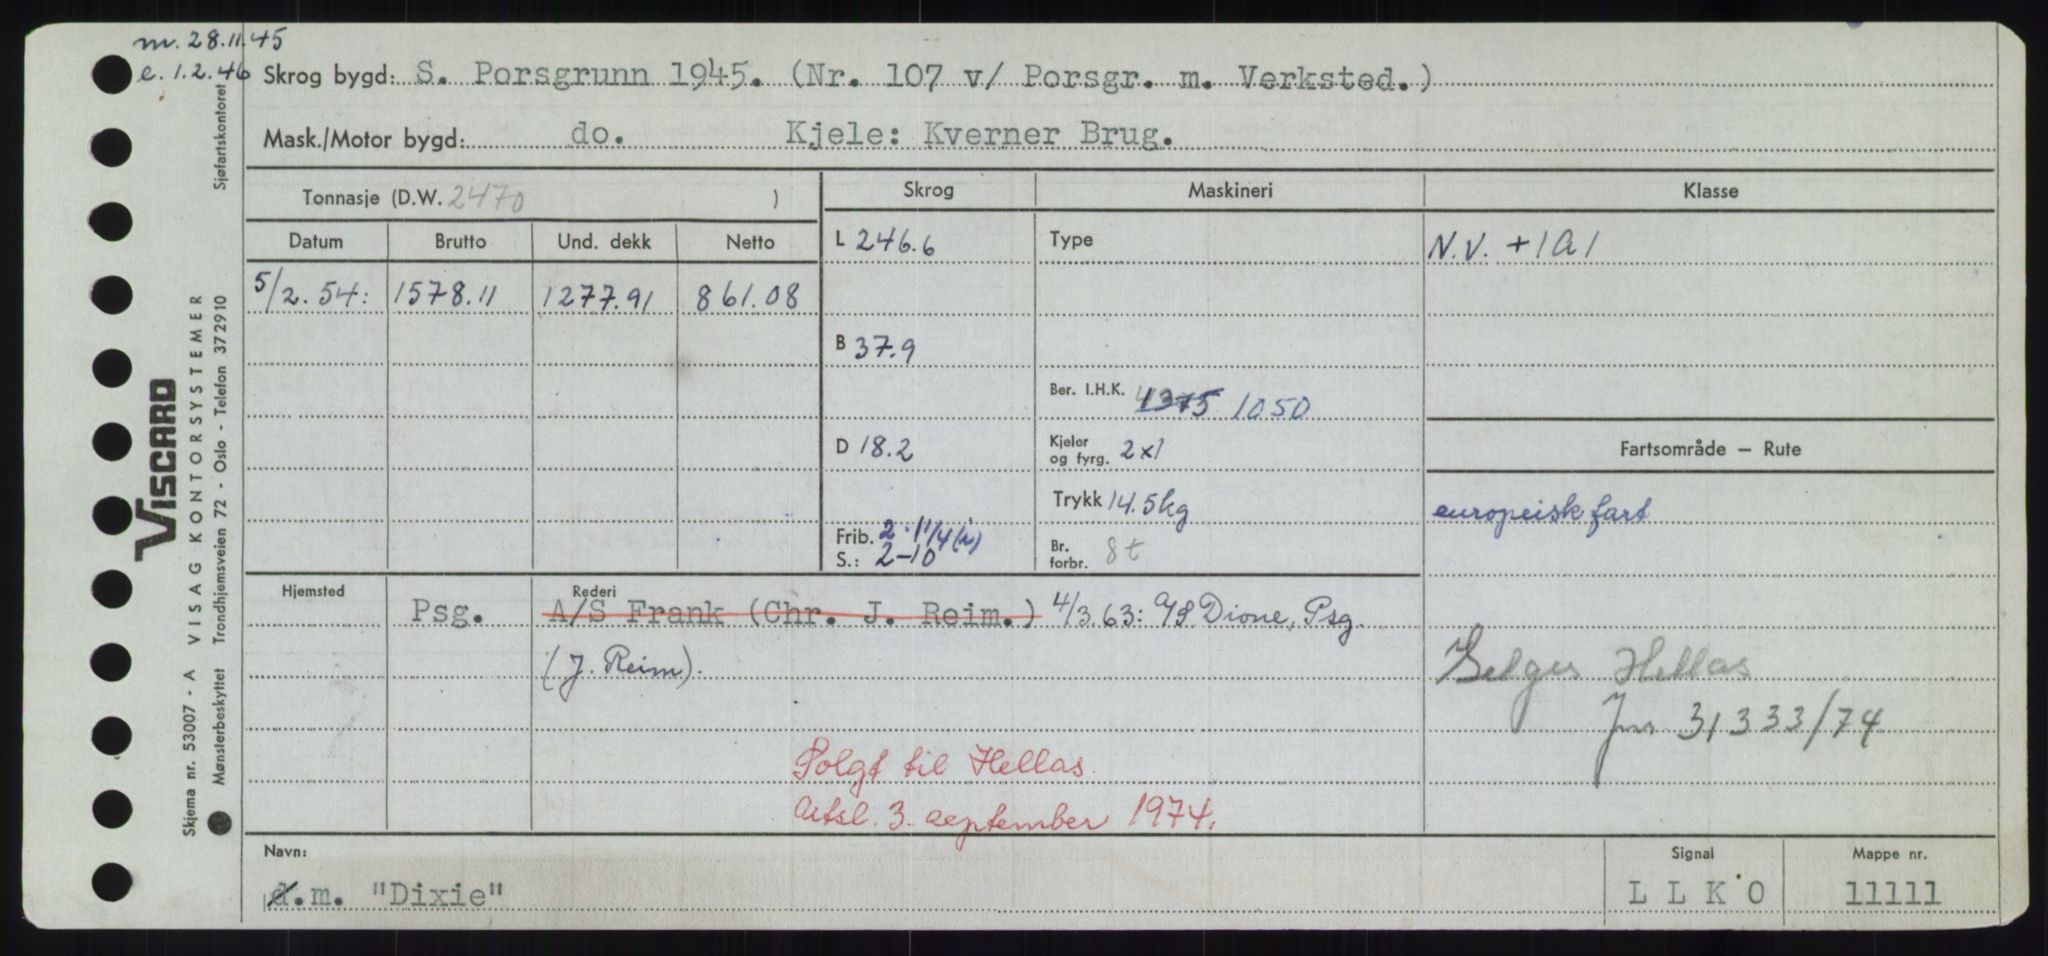 m. 28.11.45
e. 1.2.46
Skrog bygd: S. Porsgrunn 1945. (Nr. 107 v/ Porsgr. m. Verksted.)
Mask./Motor bygd: do. Kjele: Kverner Brug.
Tonnasje (D.W. 2470 )
Skrog Maskineri Klasse
Datum Brutto Und. dekk Netto
L 246.6 Type N.V. +1A1
5/2. 54: 1578.11 1277.91 861.08
B 37.9
Ber. I.H.K. 1375 1050
D 18.2 Kjeler og fyrg. 2x1 Fartsområde – Rute
Trykk 14.5kg europeisk fart
Frib. 2-11/4(i)
S.: 2-10
Br. forbr. 8 t
Hjemsted Rederi
Psg. A/S Frank (Chr. J. Reim.) 4/3.63: A/S Dione, Psg.
(J. Reim).
Selges Hellas
Jnr 31333/74
Solgt til Hellas.
Utsl. 3. september 1974.
Navn: Signal Mappe nr.
d.m. "Dixie" L L K O 11111
VISCARD
VISAG KONTORSYSTEMER
Skjema nr. 53007 - A
Mønsterbeskyttet Trondhjemsveien 72 - Oslo - Telefon 372910 Sjøfartskontoret